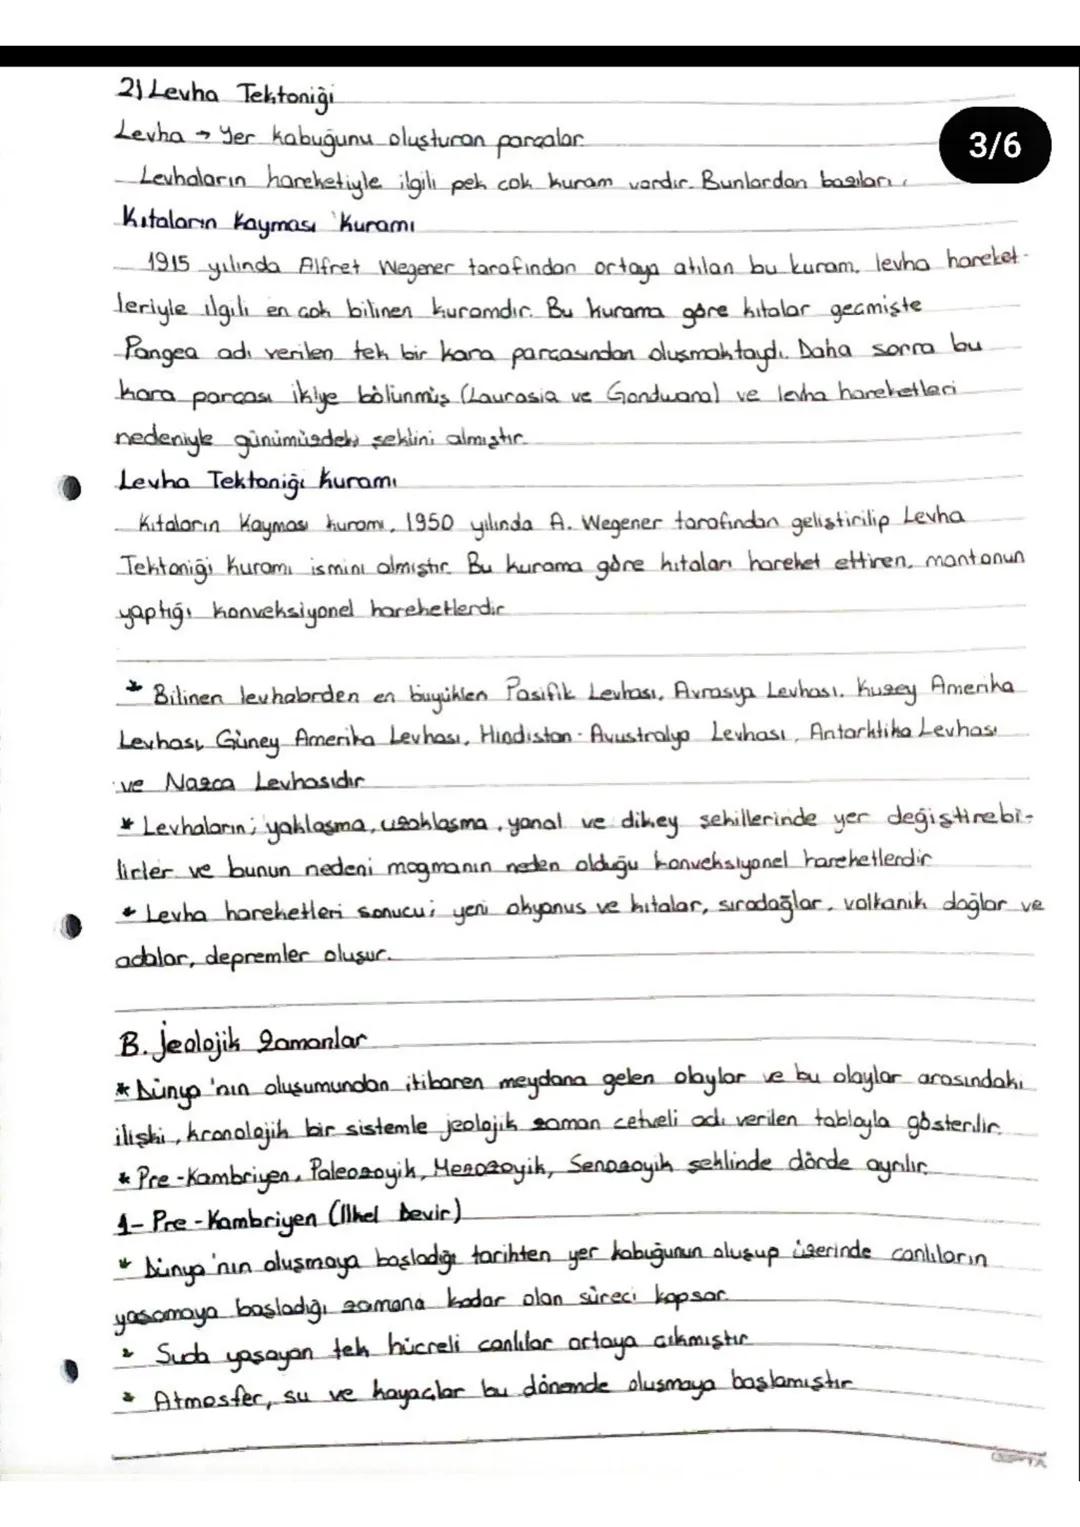 2) Levha Tektoniği
Levha → Yer kabuğunu oluşturan parçalar.
3/6
Levhaların hareketiyle ilgili pek çok kuram vardır. Bunlardan bazıları;
Kıtaların Kayması Kuramı
1915 yılında Alfret Wegener tarafından ortaya atılan bu kuram, levha hareket-
leriyle ilgili en çok bilinen kuramdır. Bu kurama göre kıtalar geçmişte
Pangea adı verilen tek bir kara parçasından oluşmaktaydı. Daha sonra bu
kara parçası ikiye bölünmüş (Laurasia ve Gondwana) ve levha hareketleri
nedeniyle günümüzdeki şeklini almıştır.
Levha Tektoniği Kuramı
Kıtaların Kayması kuramı, 1950 yılında A. Wegener tarafından geliştirilip Levha
Tektoniği Kuramı ismini almıştır. Bu kurama göre kıtaları hareket ettiren, mantonun
yaptığı konveksiyonel hareketlerdir.
* Bilinen levhalardan en büyükleri Pasifik Levhası, Avrasya Levhası, Kuzey Amerika
Levhası, Güney Amerika Levhası, Hindistan - Avustralya Levhası, Antarktika Levhası
ve Nazca Levhasıdır
* Levhaların; yaklaşma, uzaklaşma, yanal ve dikey şekillerinde yer değiştirebi-
lirler ve bunun nedeni magmanın neden olduğu konveksiyonel hareketlerdir
* Levha hareketleri sonucu; yeni okyanus ve kıtalar, sıradağlar, volkanik dağlar ve
adalar, depremler oluşur.
B. Jeolojik Zamanlar
* Dünya'nın oluşumundan itibaren meydana gelen olaylar ve bu olaylar arasındaki
ilişki, kronolojik bir sistemle jeolojik zaman cetveli adı verilen tabloyla gösterilir.
* Pre-Kambriyen, Paleozoyik, Mezozoyik, Senozoyik şeklinde dörde ayrılır.
1- Pre-Kambriyen (İlkel Devir)
* Dünya'nın oluşmaya başladığı tarihten yer kabuğunun oluşup üzerinde canlıların
yaşamaya başladığı zamana kadar olan süreci kapsar.
* Suda yaşayan tek hücreli canlılar ortaya çıkmıştır
* Atmosfer, su ve kayaçlar bu dönemde oluşmaya başlamıştır